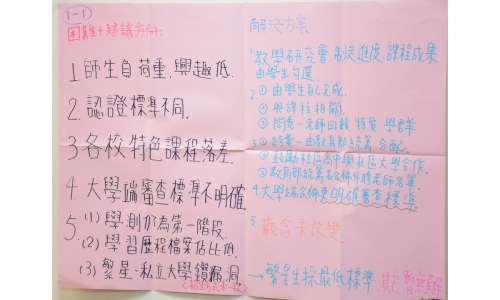 1-1
困難+建議方向:
1 師生負荷重,興趣低.
2. 認證標準不同.
3 各校特色課程落差.
4. 大學端審查標準不明確
5. (1) 學測仍為第一階段.
(2) 學習歷程檔案佔比低.
(3) 繁星、私立大學鑽漏洞
解決方案
1. 教學研究會制定進度,課程成果
由學生勾選.
2. ① 由學生自己完成.
② 與課程相關
③ 問卷-老師回饋 特質 學群
3. ① 經費-由教育部統籌分配.
② 鼓勵社區高中與社區大學合作.
③ 教育部統籌
4. 大學端公佈更明確審查標準.
5. 觀念未改變
→繁星生採最低標準
暫無解